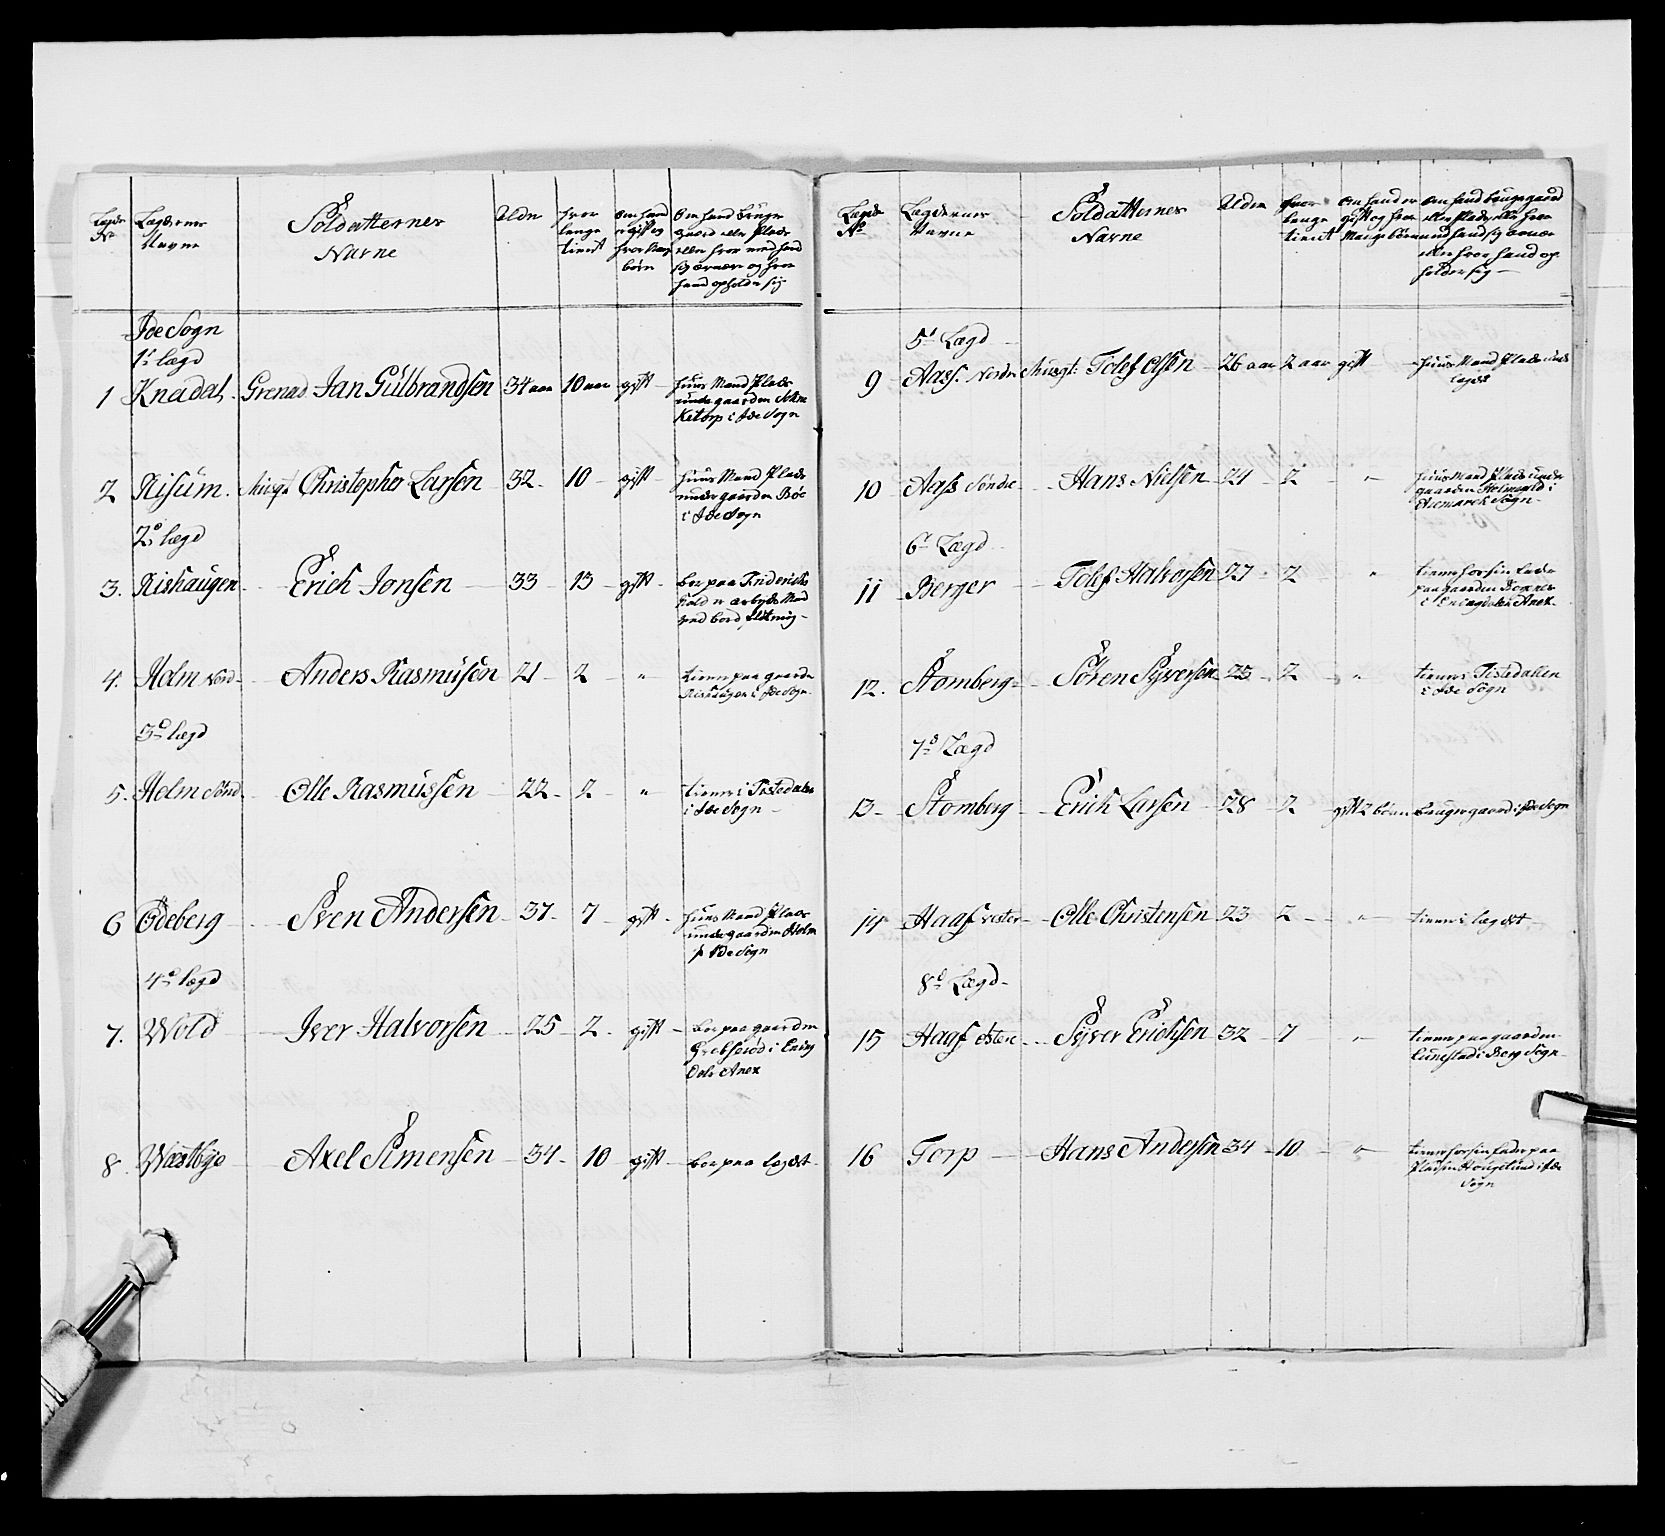 Lægde No
Lægdernes Navne
Soldatternes Navne
Alder
hvor lenge tient
om hand er gift og hvor Mange børn
Om hand bruger gaard eller Plads eller hvor med hand sig ærnærer og hvor hand opholder sig
Ide Sogn
1te lægd
1 Knadal Grenad. Jan Gulbrandsen 34 aar 10 aar gift huus Mand Plads
under gaarden
Ketorp i Ide Sogn
2 Risum Musqt Christopher Larsen 32 10 gift huus Mand Plads
under gaarden Bøe
i Ide Sogn
2de lægd
3. Rishaugen Erich Jonsen 33 13 gift boer paa Friderichs
hald er arbeyds Mand
ved bord
4. Holm Nord Anders Rasmusen 21 2 " tiener paa gaarden
Rishaugen i Ide Sogn
3de lægd
5. Holm Sønd Olle Rasmussen 22 2 " tiener i Tistedalen
i Ide Sogn
6 Ødeberg Sven Andersen 37 7 gift huus Mand Plads
under gaarden Holm
i Ide Sogn
4de lægd
7. Wold Iver Halvorsen 25 2 gift boer paa gaarden
i Enning
dals Anex
8 Wæstbye Axel Simensen 34 10 gift boer paa lægdet
Lægde No
Lægdernes Navne
Soldatternes Navne
Alder
hvor lenge tient
om hand er gift og hvor Mange børn
om hand bruger gaard eller Plads eller hvor med hand sig ærnær eller hvor hand opholder sig
5te Lægd
9 Aass Nordre Musqt: Tolef Olsen 26 aar 2 aar gift huus Mand Plads under
lægdet
10 Aass Søndre Hans Nielsen 24 2 " huus Mand Plads under
gaarden Holmegild i
Aremarch Sogn
6te Lægd
11 Berger Tolef Halvorsen 27 2 " tiener for sin Fader
paa gaarden Berger
i Enningdalen Anex
12. Stomberg Søren Syversen 25 2 " tiener i Tistedallen
i Ide Sogn
7de Lægd
13 Stomberg Erich Larsen 28 2 gift 2 børn Bruger gaard i Ide Sogn
14 Haaf Vester Olle Christensen 23 2 " tiener i lægdet
8de Lægd
15 Haaf Østere Syver Erichsen 32 7 " tiener paa gaarden
Lunestad i Berg Sogn
16 Torp Hans Andersen 34 10 " tiener for sin Fader paa
Pladsen i Ide
Sogn